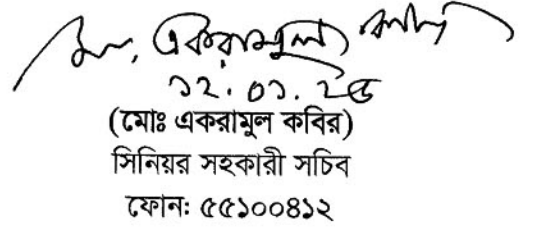 মোঃ একরামুল কবির
১২.০১.২৫
(মোঃ একরামুল কবির)
সিনিয়র সহকারী সচিব
ফোনঃ ৫৫১০০৪১২